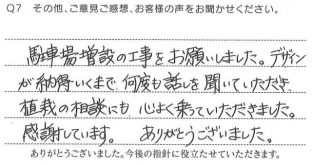 Q7 その他、ご意見ご感想、お客様の声をお聞かせください。
駐車場増設の工事をお願いしました。デザイン
が納得いくまで何度も話しを聞いていただき
植栽の相談にも心よく乗っていただきました。
感謝しています。 ありがとうございました。
ありがとうございました。今後の指針に役立たせていただきます。